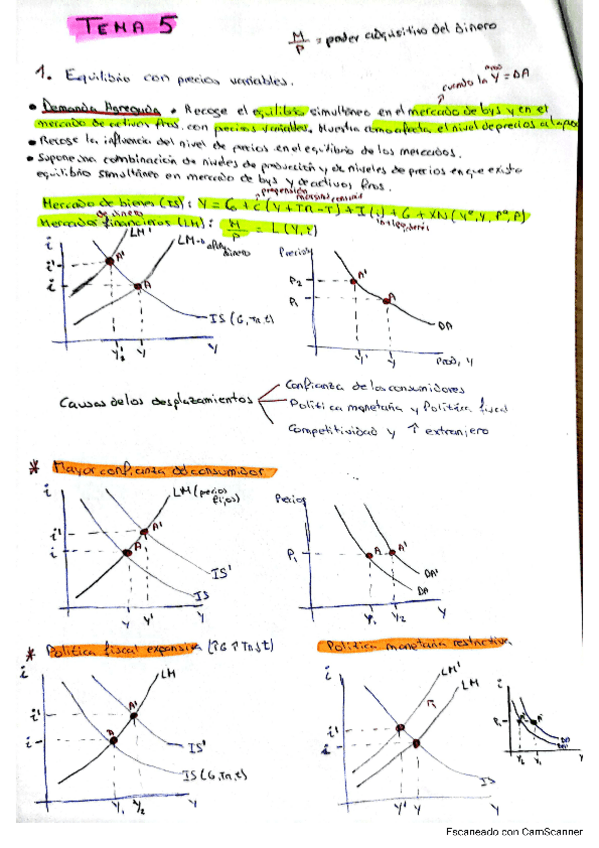 TEMA 5
M/P = poder adquisitivo del dinero
1. Equilibrio con precios variables.
cuando la Y = DA
• Demanda Agregada. Recoge el equilibrio simultáneo en el mercado de bys y en el
mercado de activos fros. con precios variables. Muestra como afecta el nivel de precios a la
• Recoge la influencia del nivel de precios en el equilibrio de los mercados.
• Supone una combinación de niveles de producción y de niveles de precios en que existe
equilibrio simultáneo en mercado de bys y de activos fros.
propensión marginal
Mercado de bienes (IS): Y =
+ I(i) + G + XN
de dinero
Mercados financieros (LM): M/P = L(Y,
i
LM'
LM
dinero
i'
A'
i
A
IS (G, Tn, t)
Y'
Y
Y
Precios
P2
A'
P1
A
DA
Y'
Y
Prod, Y
Causas de los desplazamientos
Confianza de los consumidores
Política monetaria y Política fiscal
Competitividad y ↑ extranjero
* Mayor confianza del consumidor
i
LM (precios fijos)
i'
A'
i
A
IS'
IS
Y
Y'
Y
Precios
P1
A
A'
DA'
DA
Y1
Y2
Y
* Política fiscal expansiva (↑G ↑Tn ↓t)
i
LM
i'
A'
i
A
IS'
IS (G, Tn, t)
Y1
Y2
Y
Política monetaria restrictiva
i
LM'
LM
i'
i
IS
Y'
Y
Y
i
P1
A
DA
Y2
Y1
Y
Escaneado con CamScanner